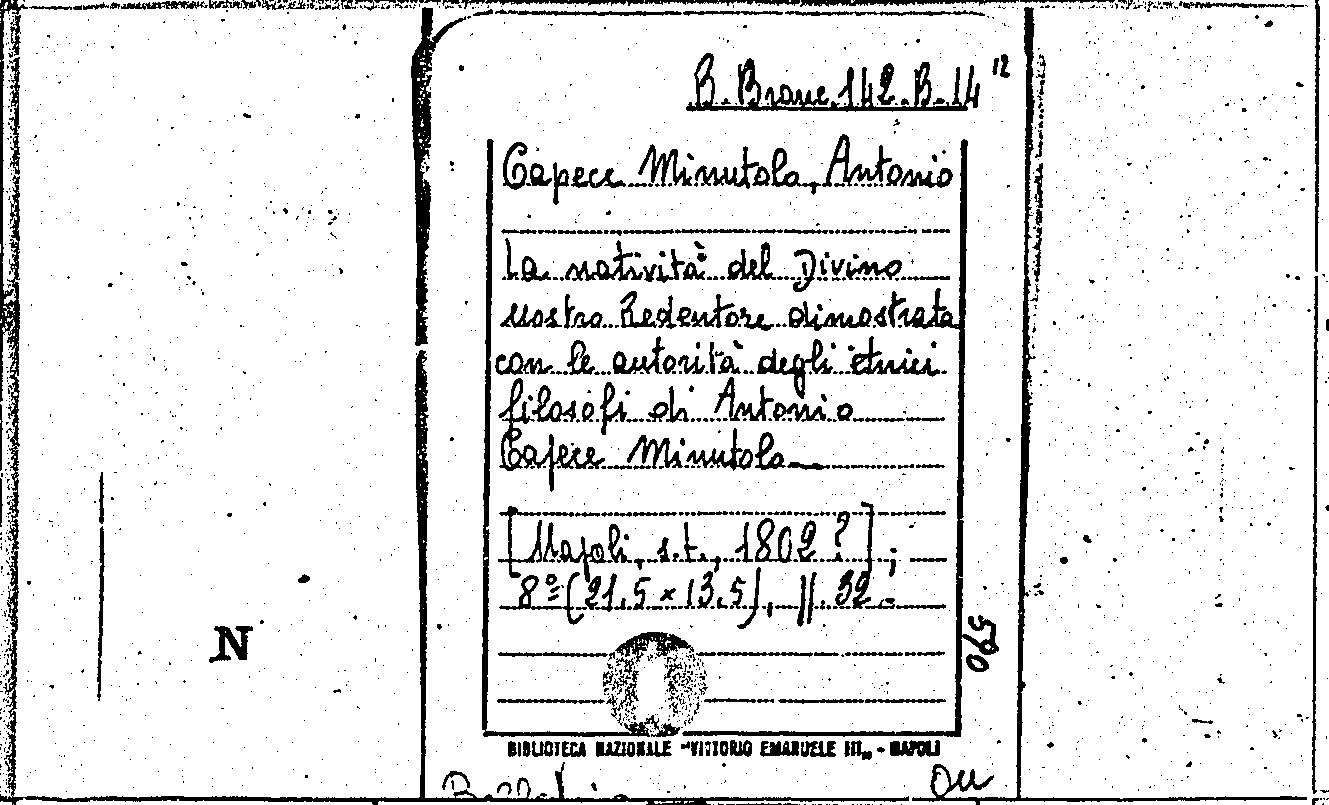 B. Branc. 142. B. 14 12
Capece Minutolo, Antonio
La natività del Divino
nostro Redentore dimostrata
con le autorità degli etnici
filosofi di Antonio
Capece Minutolo
[Napoli, s.t., 1802 ?] ;
8º (21,5 × 13,5), pp. 32 -
590
N
BIBLIOTECA NAZIONALE "VITTORIO EMANUELE III„ - NAPOLI